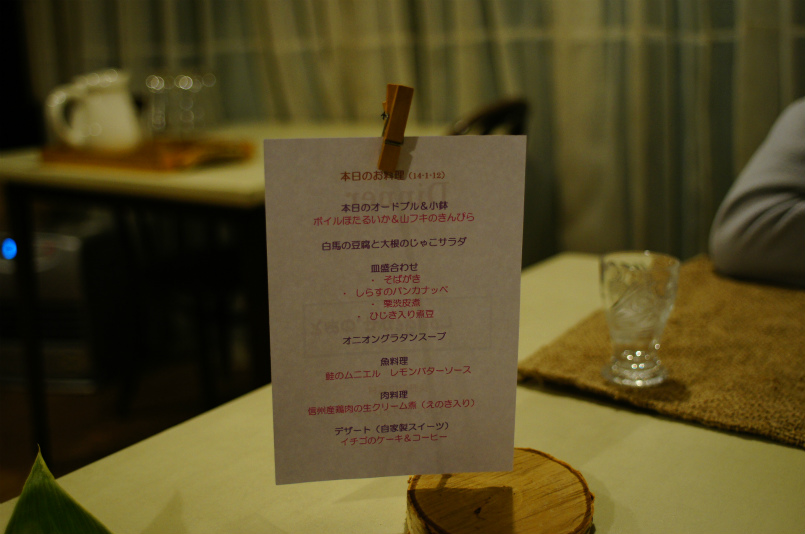 本日のお料理（14・1・12）
本日のオードブル＆小鉢
ボイルほたるいか＆山フキのきんぴら
白馬の豆腐と大根のじゃこサラダ
皿盛合わせ
・ そばがき
・ しらすのパンカナッペ
・ 栗渋皮煮
・ ひじき入り煮豆
オニオングラタンスープ
魚料理
鮭のムニエル　レモンバターソース
肉料理
信州産鶏肉の生クリーム煮（えのき入り）
デザート（自家製スイーツ）
イチゴのケーキ＆コーヒー
Dinner